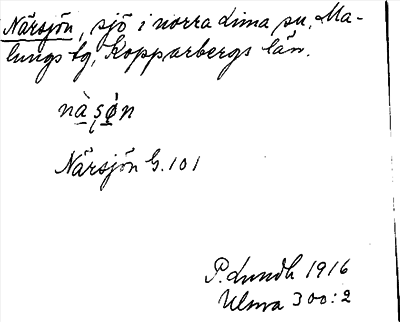 Närsjön, sjö i norra Lima sn, Ma-
lungs tg, Kopparbergs län.
nàṣø̀n
Närsjön G. 101
P. Lundh 1916
Ulma 300:2